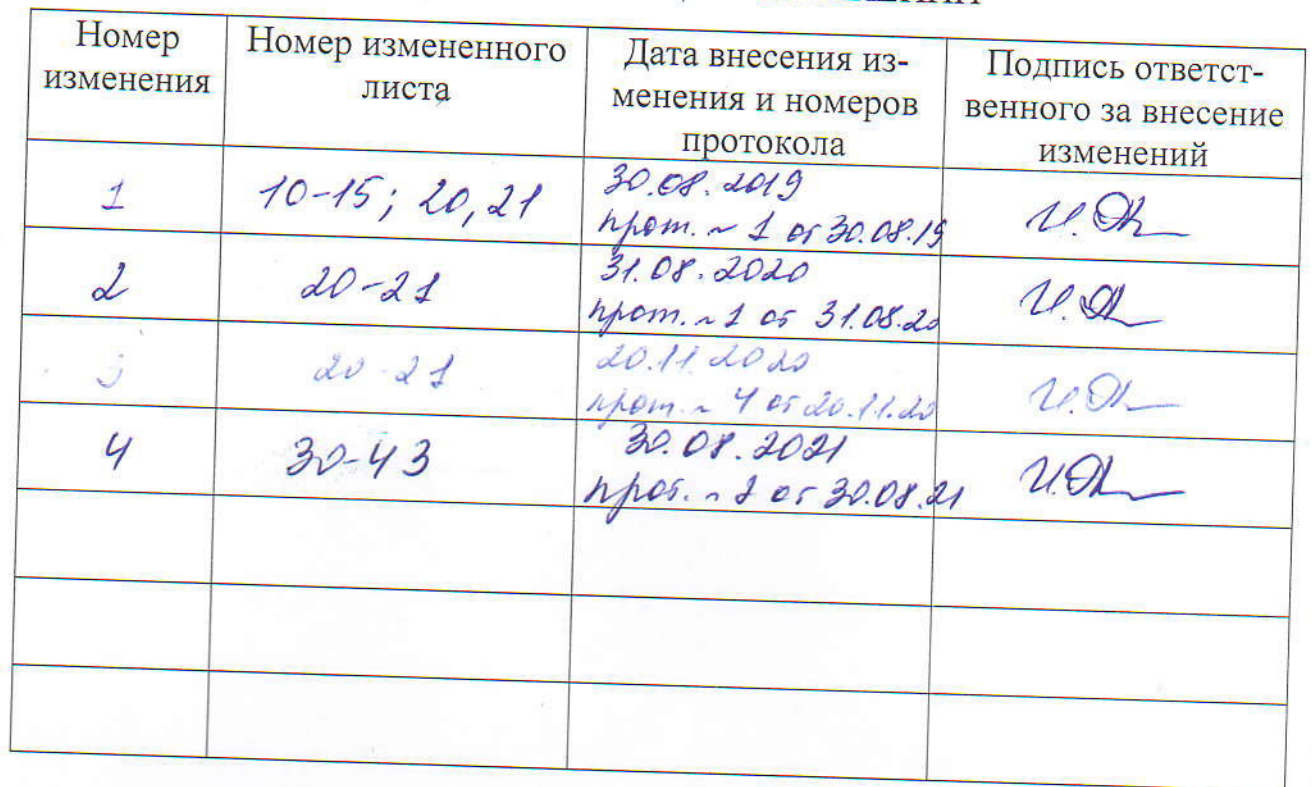 Номер изменения
Номер измененного листа
Дата внесения из-
менения и номеров
протокола
Подпись ответст-
венного за внесение
изменений
1
10-15; 20,21
30.08.2019
прот. ~ 1 от 30.08.19
2
20-21
31.08.2020
прот. ~ 1 от 31.08.20
3
20-21
20.11.2020
прот. ~ 4 от 20.11.20
4
30-43
30.08.2021
прот. ~ 1 от 30.08.21